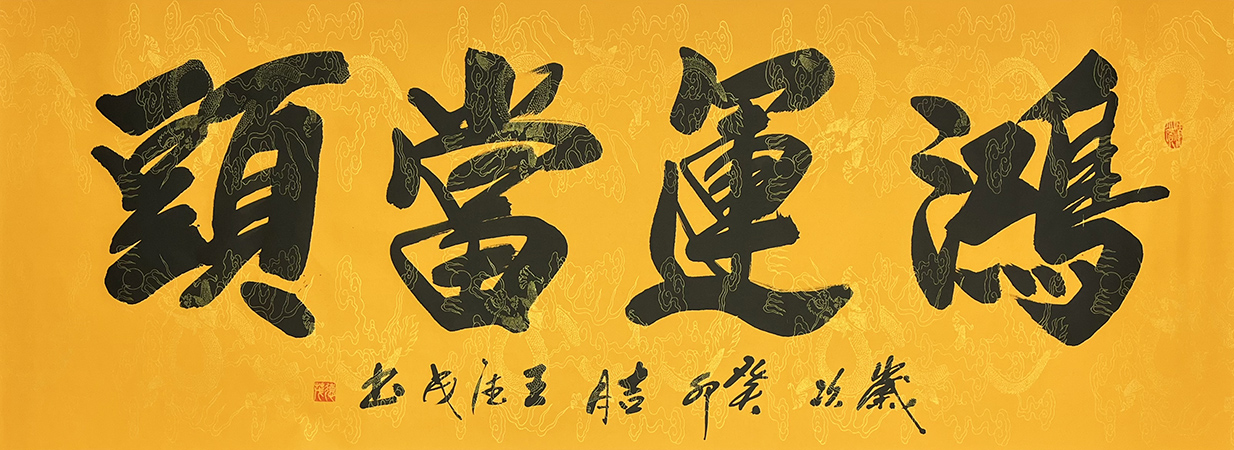 鴻運當頭
歲次癸卯吉月王德成書